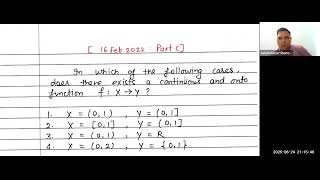 [ 16 Feb 2022 : Part C]
In which of the following cases,
does there exists a continuous and onto
function f : X → Y ?
1. X = (0,1) , Y = (0,1]
2. X = [0,1] , Y = (0,1]
3. X = (0,1) , Y = R
4. X = (0,2) , Y = {0,1}
2025-06-24 21:15:40